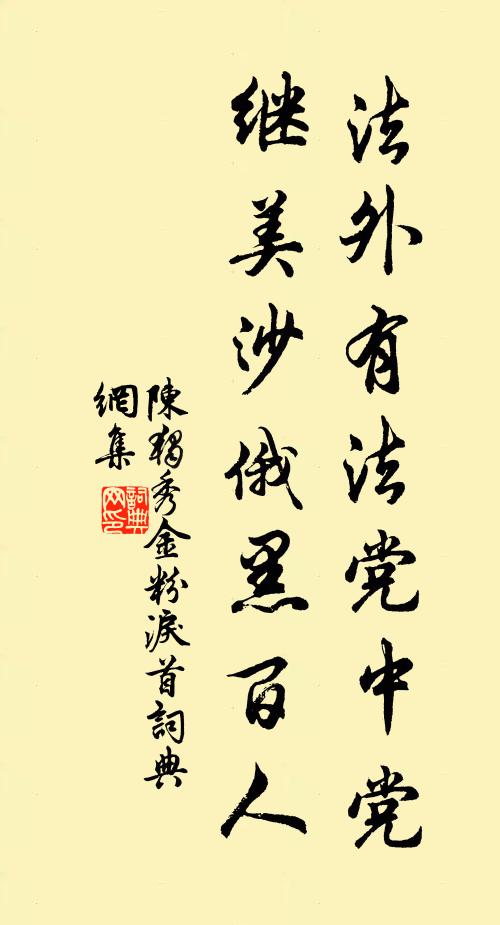 法外有法党中党
继美沙俄黑百人
陳獨秀金粉淚首詞典
網集
詞典网印